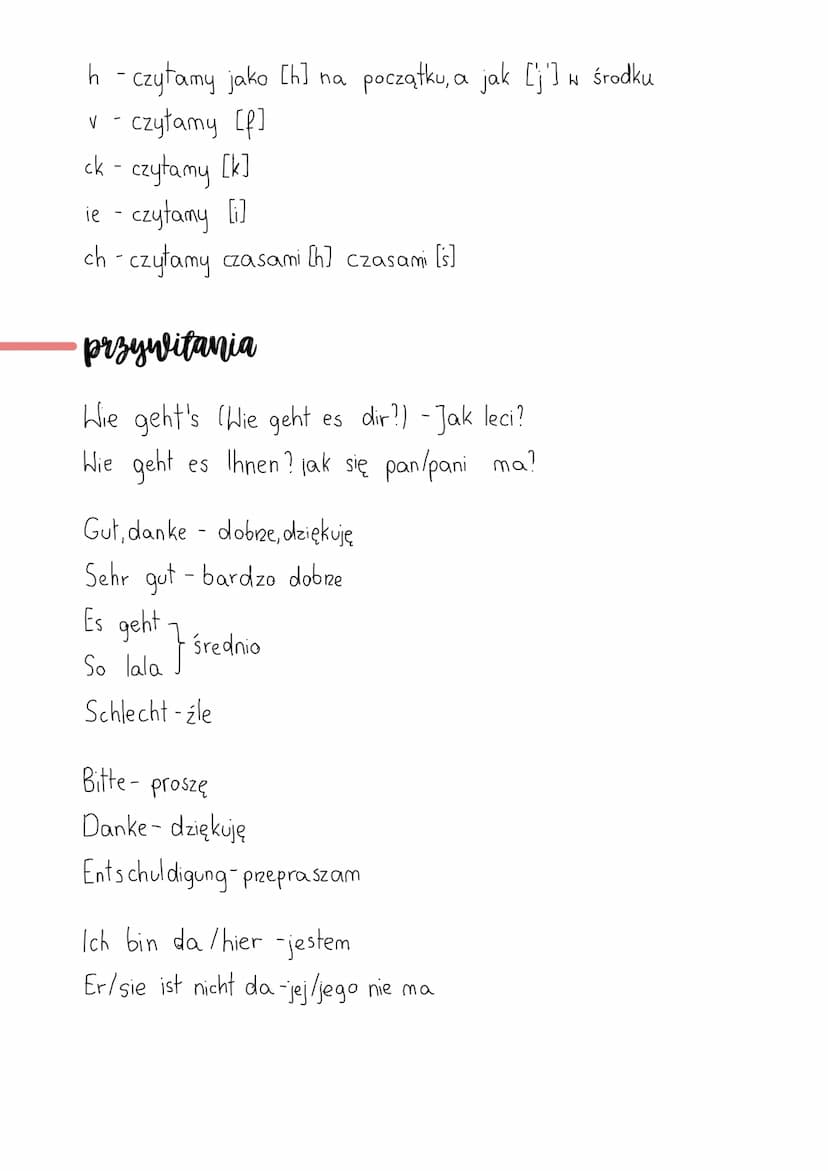 h - czytamy jako [h] na początku, a jak ['j'] w środku
v - czytamy [f]
ck - czytamy [k]
ie - czytamy [i]
ch - czytamy czasami [h] czasami [ś]
przywitania
Wie geht's (Wie geht es dir?) - Jak leci?
Wie geht es Ihnen? jak się pan/pani ma?
Gut, danke - dobrze, dziękuję
Sehr gut - bardzo dobrze
Es geht
} średnio
So lala
Schlecht - źle
Bitte - proszę
Danke - dziękuję
Entschuldigung - przepraszam
Ich bin da /hier - jestem
Er/sie ist nicht da - jej/jego nie ma